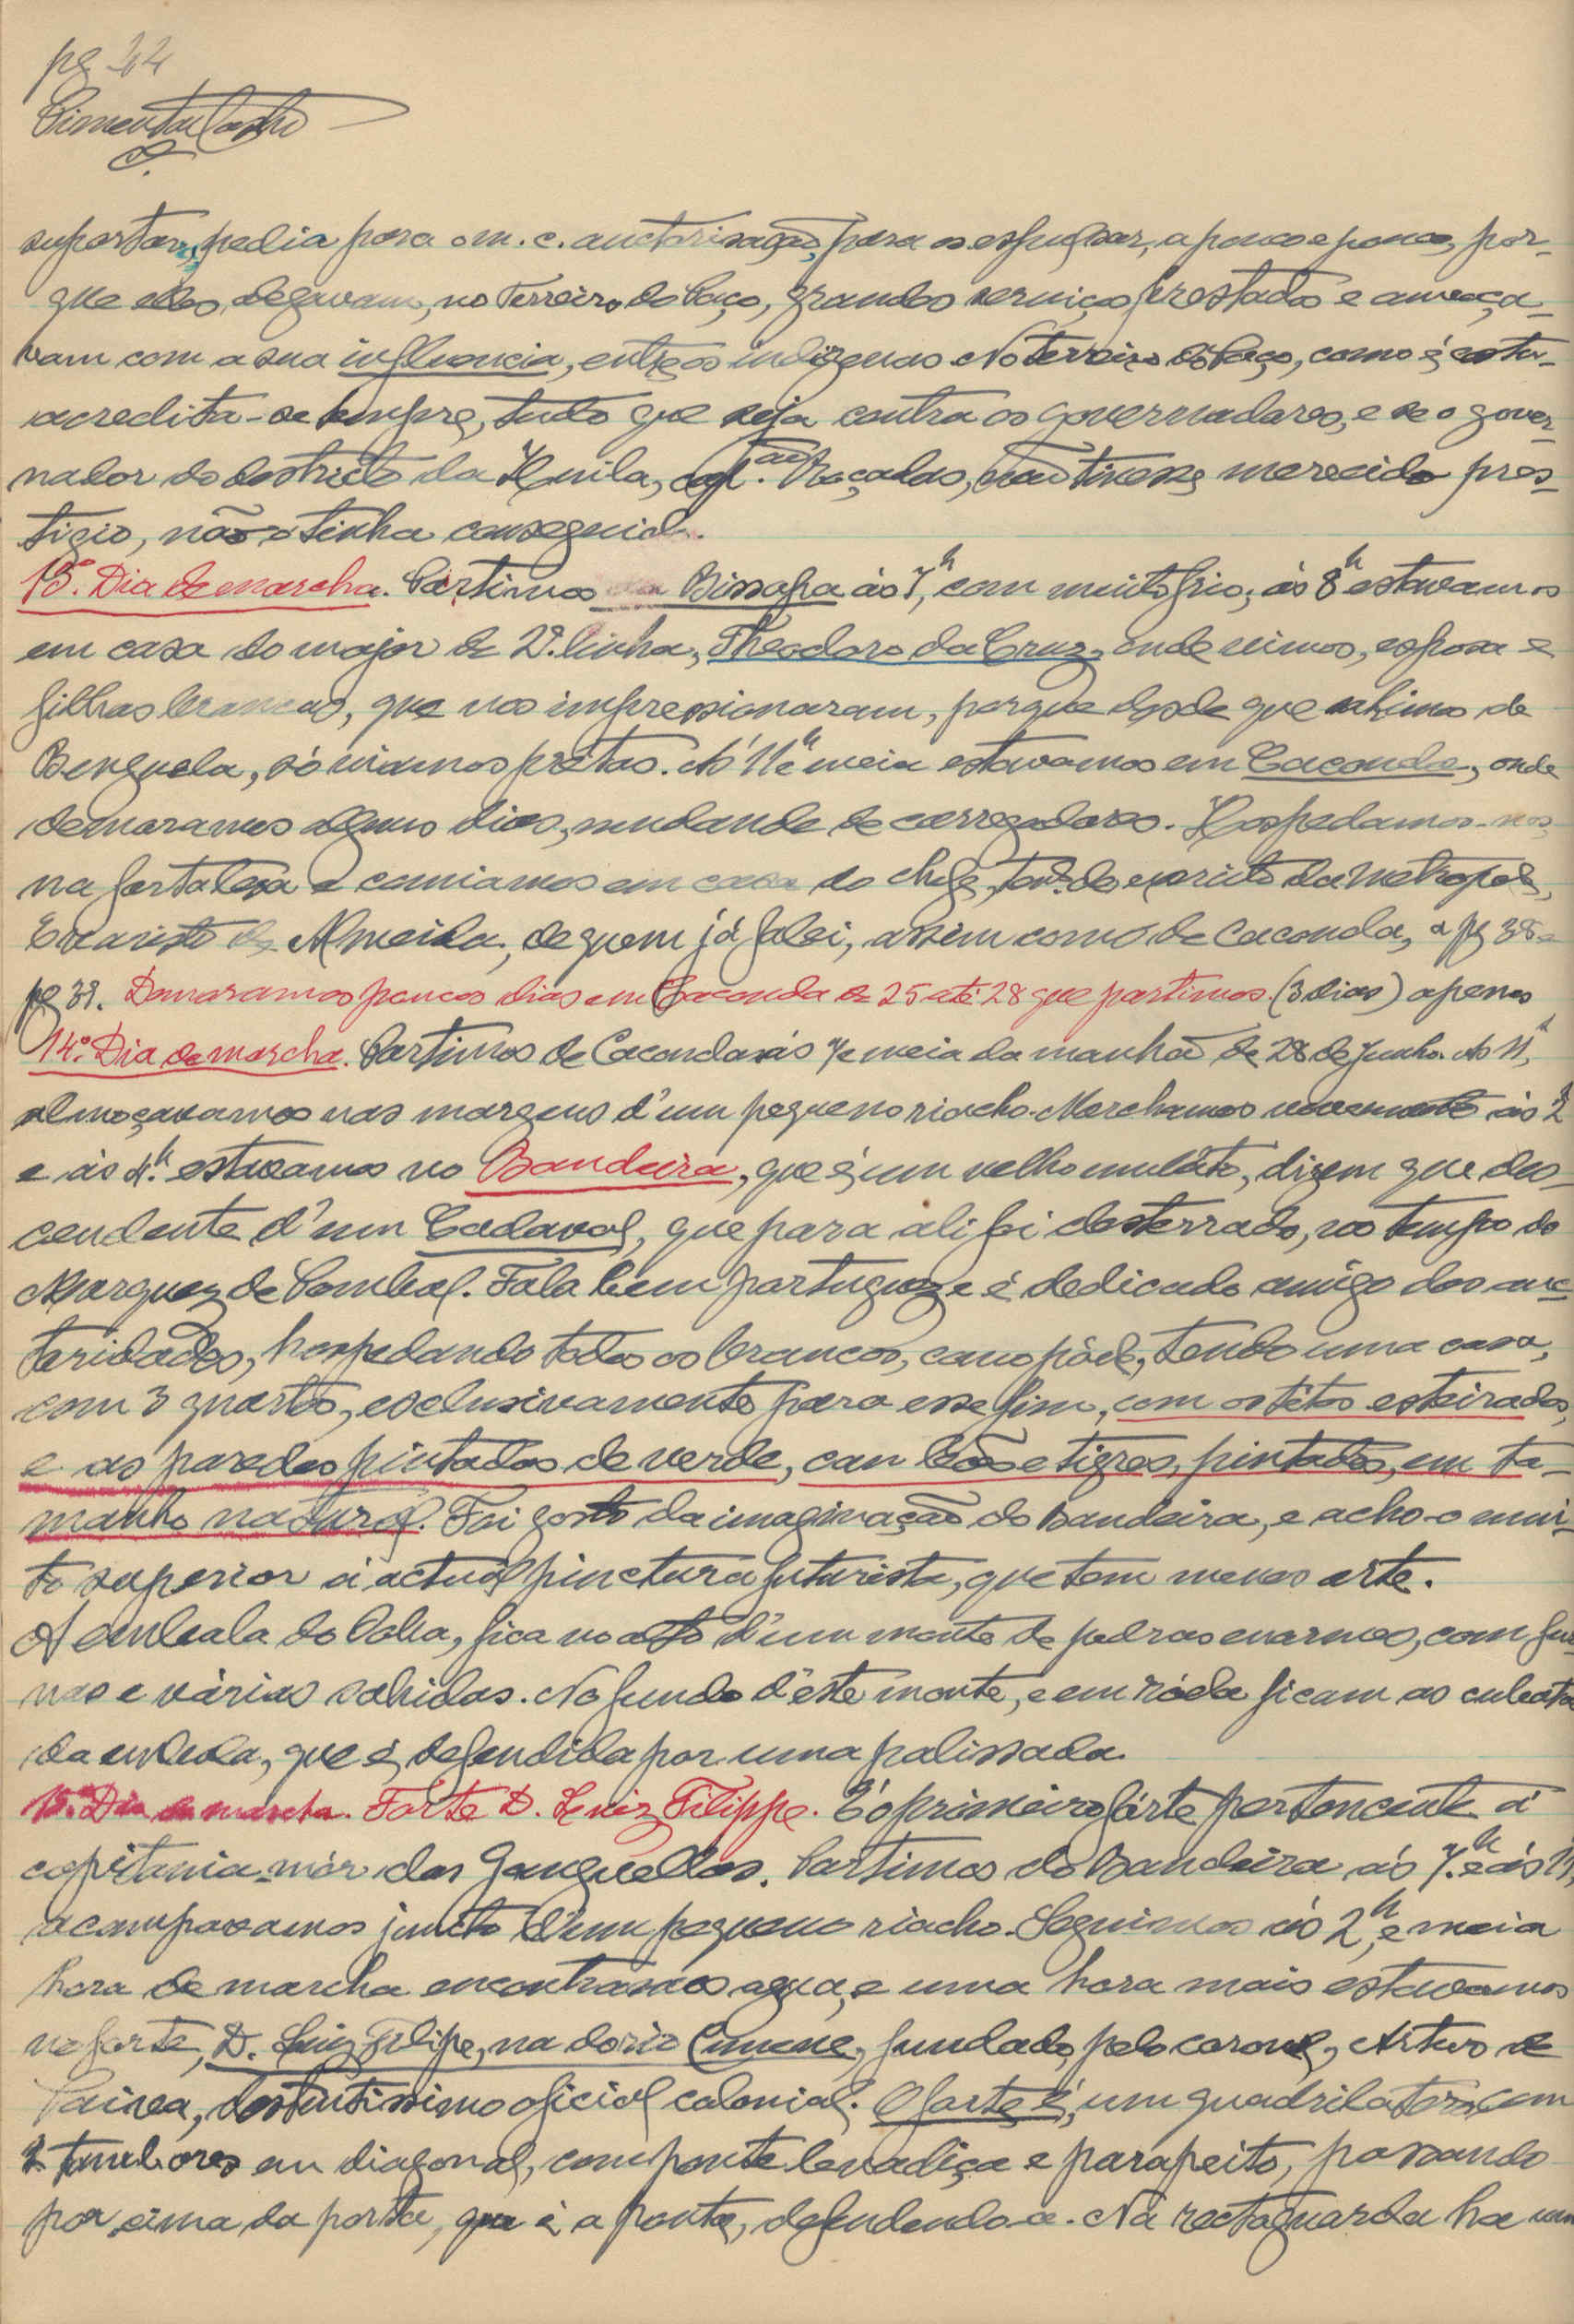 pg 44
Pimentel Castro
suportar, pedia para o m. c. auctorisação, para os espulsar, a pouco e pouco, por-
que elles alegavam, no Terreiro do Paço, grandes serviços prestados e ameaça-
vam com a sua influencia, entre os indigenas No terreiro do Paço, como é costu-
acredita-se sempre, tudo que seja contra os governadores, e se o gover-
nador do destricto da Huila, cap.ão Roçadas, não tivesse merecido pres-
tigio, não o tinha conseguido.
13º. Dia de marcha. Partimos da Bissapa ás 7h, com muito frio; ás 8h estavamos
em casa do major de 2ª. linha, Theodoro da Cruz, onde vimos, esposa e
filhas brancas, que nos impressionaram, porque desde que sahimos de
Benguela, só viamos prêtas. A's 11h e meia estavamos em Caconda, onde
demoramos alguns dias, mudando de carregadores. Hospedamo-nos,
na fortaleza e comiamos em casa do chefe, tent. do exercito da metropole,
Evaristo de Almeida, de quem já falei, assim como de Caconda, a pg 38 e
pg 39. Demoramos poucos dias em Caconda de 25 até 28 que partimos. (3 dias) apenas
14º. Dia de marcha. Partimos de Caconda ás 7 e meia da manhã de 28 de Junho. As 11h,
almoçavamos nas margens d'um pequeno riacho. Marchamos novamente ás 2h
e ás 4h. estavamos no Bandeira, que é um velho mulato, dizem que des-
cendente d'um Cadaval, que para ali foi desterrado, no tempo do
Marquez de Pombal. Fala bem portuguez e é dedicado amigo das auc-
toridades, hospedando todos os brancos, como póde, tendo uma casa,
com 3 quartos, esclusivamente para esse fim, com os tétos esteirados,
e as paredes pintadas de verde, com leões e tigres, pintados, em ta-
manho natural. Foi gosto da imaginação do Bandeira, e acho-o mui-
to superior á actual pinctura futurista, que tem menos arte.
A embala do Soba, fica no alto d'um monte de pedras enormes, com fur-
nas e várias sahidas. No fundo d'este monte, e em róda ficam as cubatas
da embala, que é, defendida por uma palissada.
15º. Dia de marcha. Forte D. Luiz Filippe. É o primeiro fórte pertencente á
capitania-mór dos Ganguellas. Partimos do Bandeira ás 7.h e ás 11,
acampavamos junto d'um pequeno riacho. Seguimos ás 2h, e meia
hora de marcha encontramos agua, e uma hora mais estavamos
no forte, D. Luiz Filipe, na do rio Cunene, fundado, pelo coronel, Arturo de
Paiva, destintissimo oficial colonial. O forte é, um quadrilatero, com
2 tambores em diagonal, com ponte levadiça e parapeito, passando
por cima da porta, que é a ponte, defendendo-a. Na rectaguarda ha um